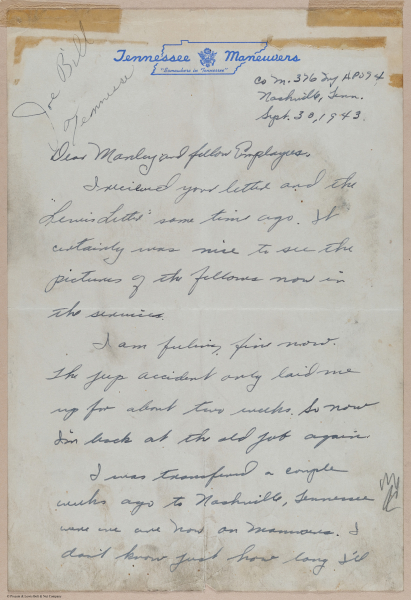 Tennessee Maneuvers
"Somewhere in Tennessee"
Joe Bill
Tennessee
Co M. 376 Inf APO 94
Nashville, Tenn.
Sept. 30, 1943.
Dear Manley and fellow Employees,
I received your letter and the
"Lewis Letter" some time ago. It
certainly was nice to see the
pictures of the fellows now in
the services.
I am feeling fine now.
The jeep accident only laid me
up for about two weeks. So now
I'm back at the old job again.
I was transferred a couple
weeks ago to Nashville, Tennessee
were we are now on
I
don't know just how long I'll